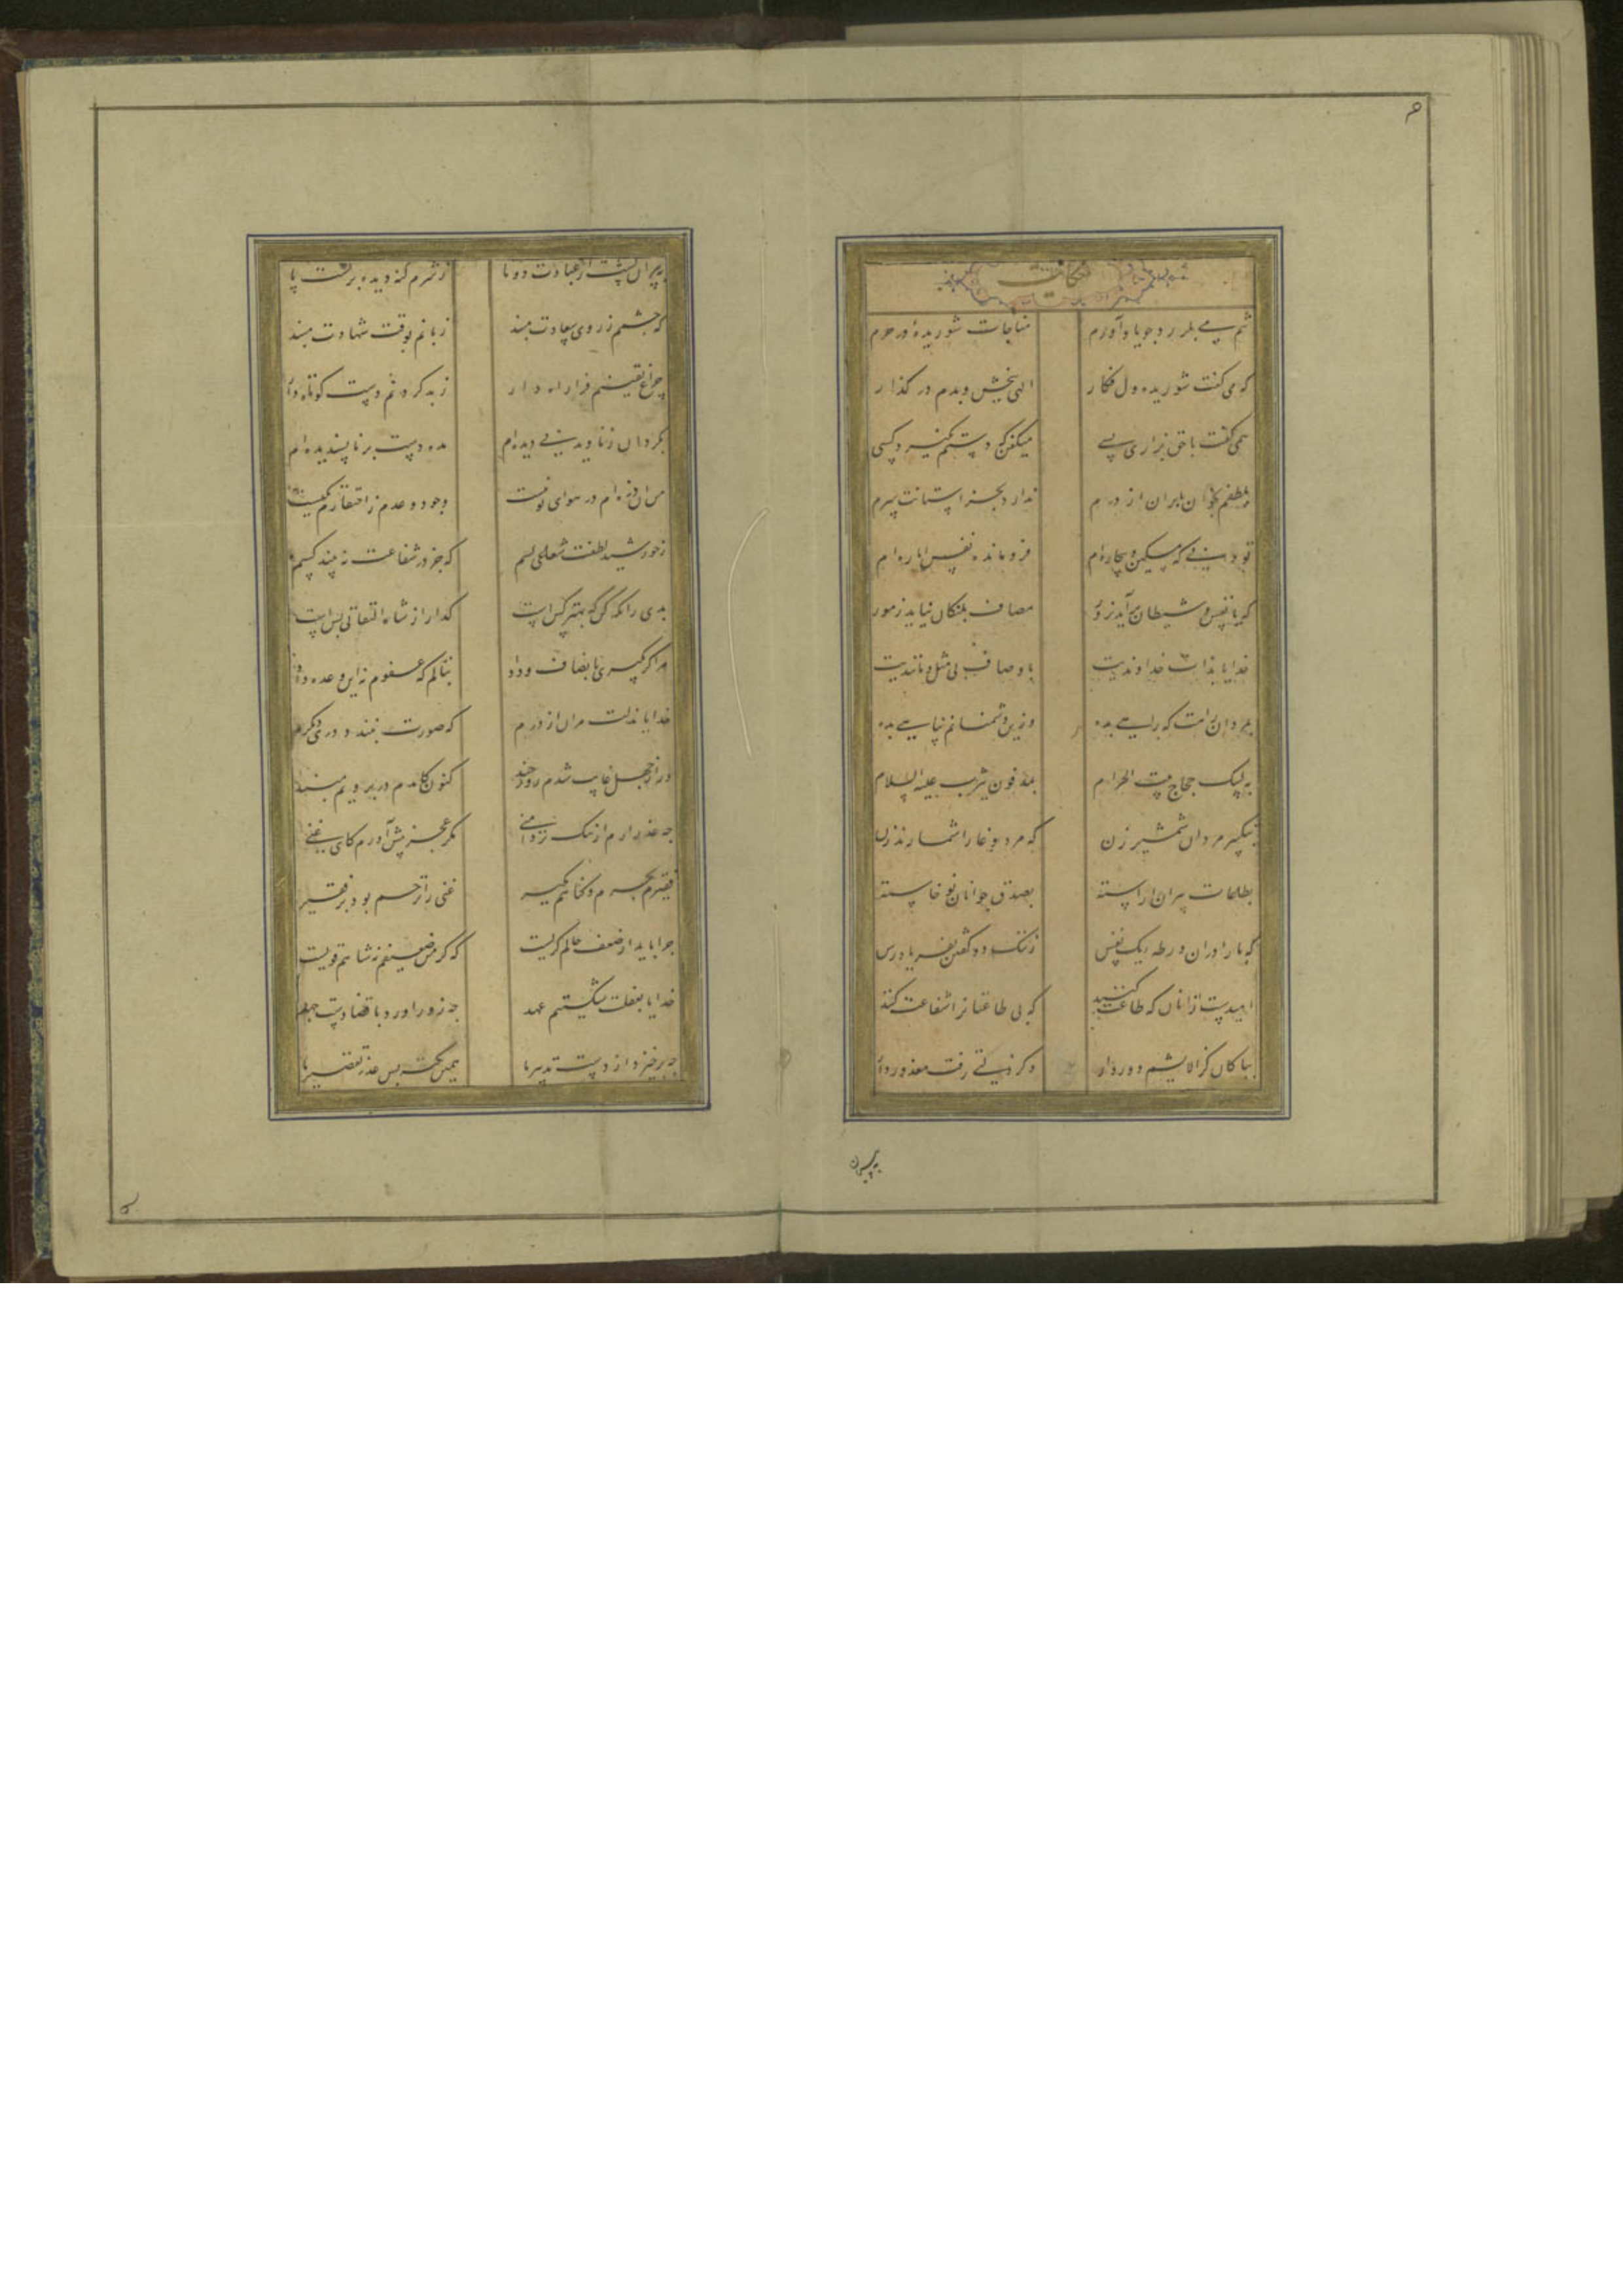 حکایت
تنم می بلرزد چو یاد آورم
مناجات شوریدهٔ در حرم
که می گفت شوریده دل فکار
الهی ببخش و بدم در گذار
همی گفت با حق بزاری بسی
میفکن که دستم نگیرد کسی
بلطفم بخوان یا بران از درم
ندارد بجز آستانت سرم
تو دانی که مسکین و بیچاره ام
فرو مانده نفس اماره ام
که با نفس و شیطان برآید بزور
مصاف پلنگان نیاید ز مور
خدایا بذات خداوندیت
باوصاف بی مثل و مانندیت
بمردان راهت که راهی بده
وزین دشمنانم پناهی بده
به لبیک حجاج بیت الحرام
بمدفون یثرب علیه السلام
بتکبیر مردان شمشیر زن
که مرد وغا را شمارند زن
بطاعات پیران اراسته
بصدق جوانان نو خاسته
که ما را دران ورطه یک نفس
ز ننک دو گفتن بفریاد رس
امیدست از انان که طاعت کنند
که بی طاعتانرا شفاعت کنند
بپاکان کز الایشم دور دار
وگر زلتی رفت معذور دار
به پیران
به پیران پشت از عبادت دوتا
ز شرم گنه دیده بر پشت پا
که چشمم ز روی سعادت مبند
زبانم بوقت شهادت مبند
چراغ یقینم فرا راه دار
ز بد کردنم دست کوتاه دار
بگردان ز نادیدنی دیده ام
مده دست بر ناپسندیده ام
من ان ذره ام در هوای تو نیست
وجود و عدم ز احتقارم یکیست
ز خورشید لطفت شعاعی بسم
که جز در شعاعت نبیند کسم
بدی را نگه کن که بهتر کس است
گدا را ز شاه التفاتی بس است
مرا گر بگیری بانصاف و داد
بنالم که عفوم نه این وعده داد
خدایا بذلت مران از درم
که صورت نبندد دری دیگرم
ور از جهل غایب شدم روز چند
کنون کامدم در برویم مبند
چه عذر ارم از ننک تردامنی
مگر عجز پیش آورم کای غنی
فقیرم بجرم و گناهم مگیر
غنی را ترحم بود بر فقیر
چرا باید از ضعف حالم گریست
که گر من ضعیفم پناهم قویست
خدایا بغفلت شکستیم عهد
چه زور اورد با قضا دست جهد
چه برخیزد از دست تدبیر ما
همین نکته بس عذر تقصیر ما